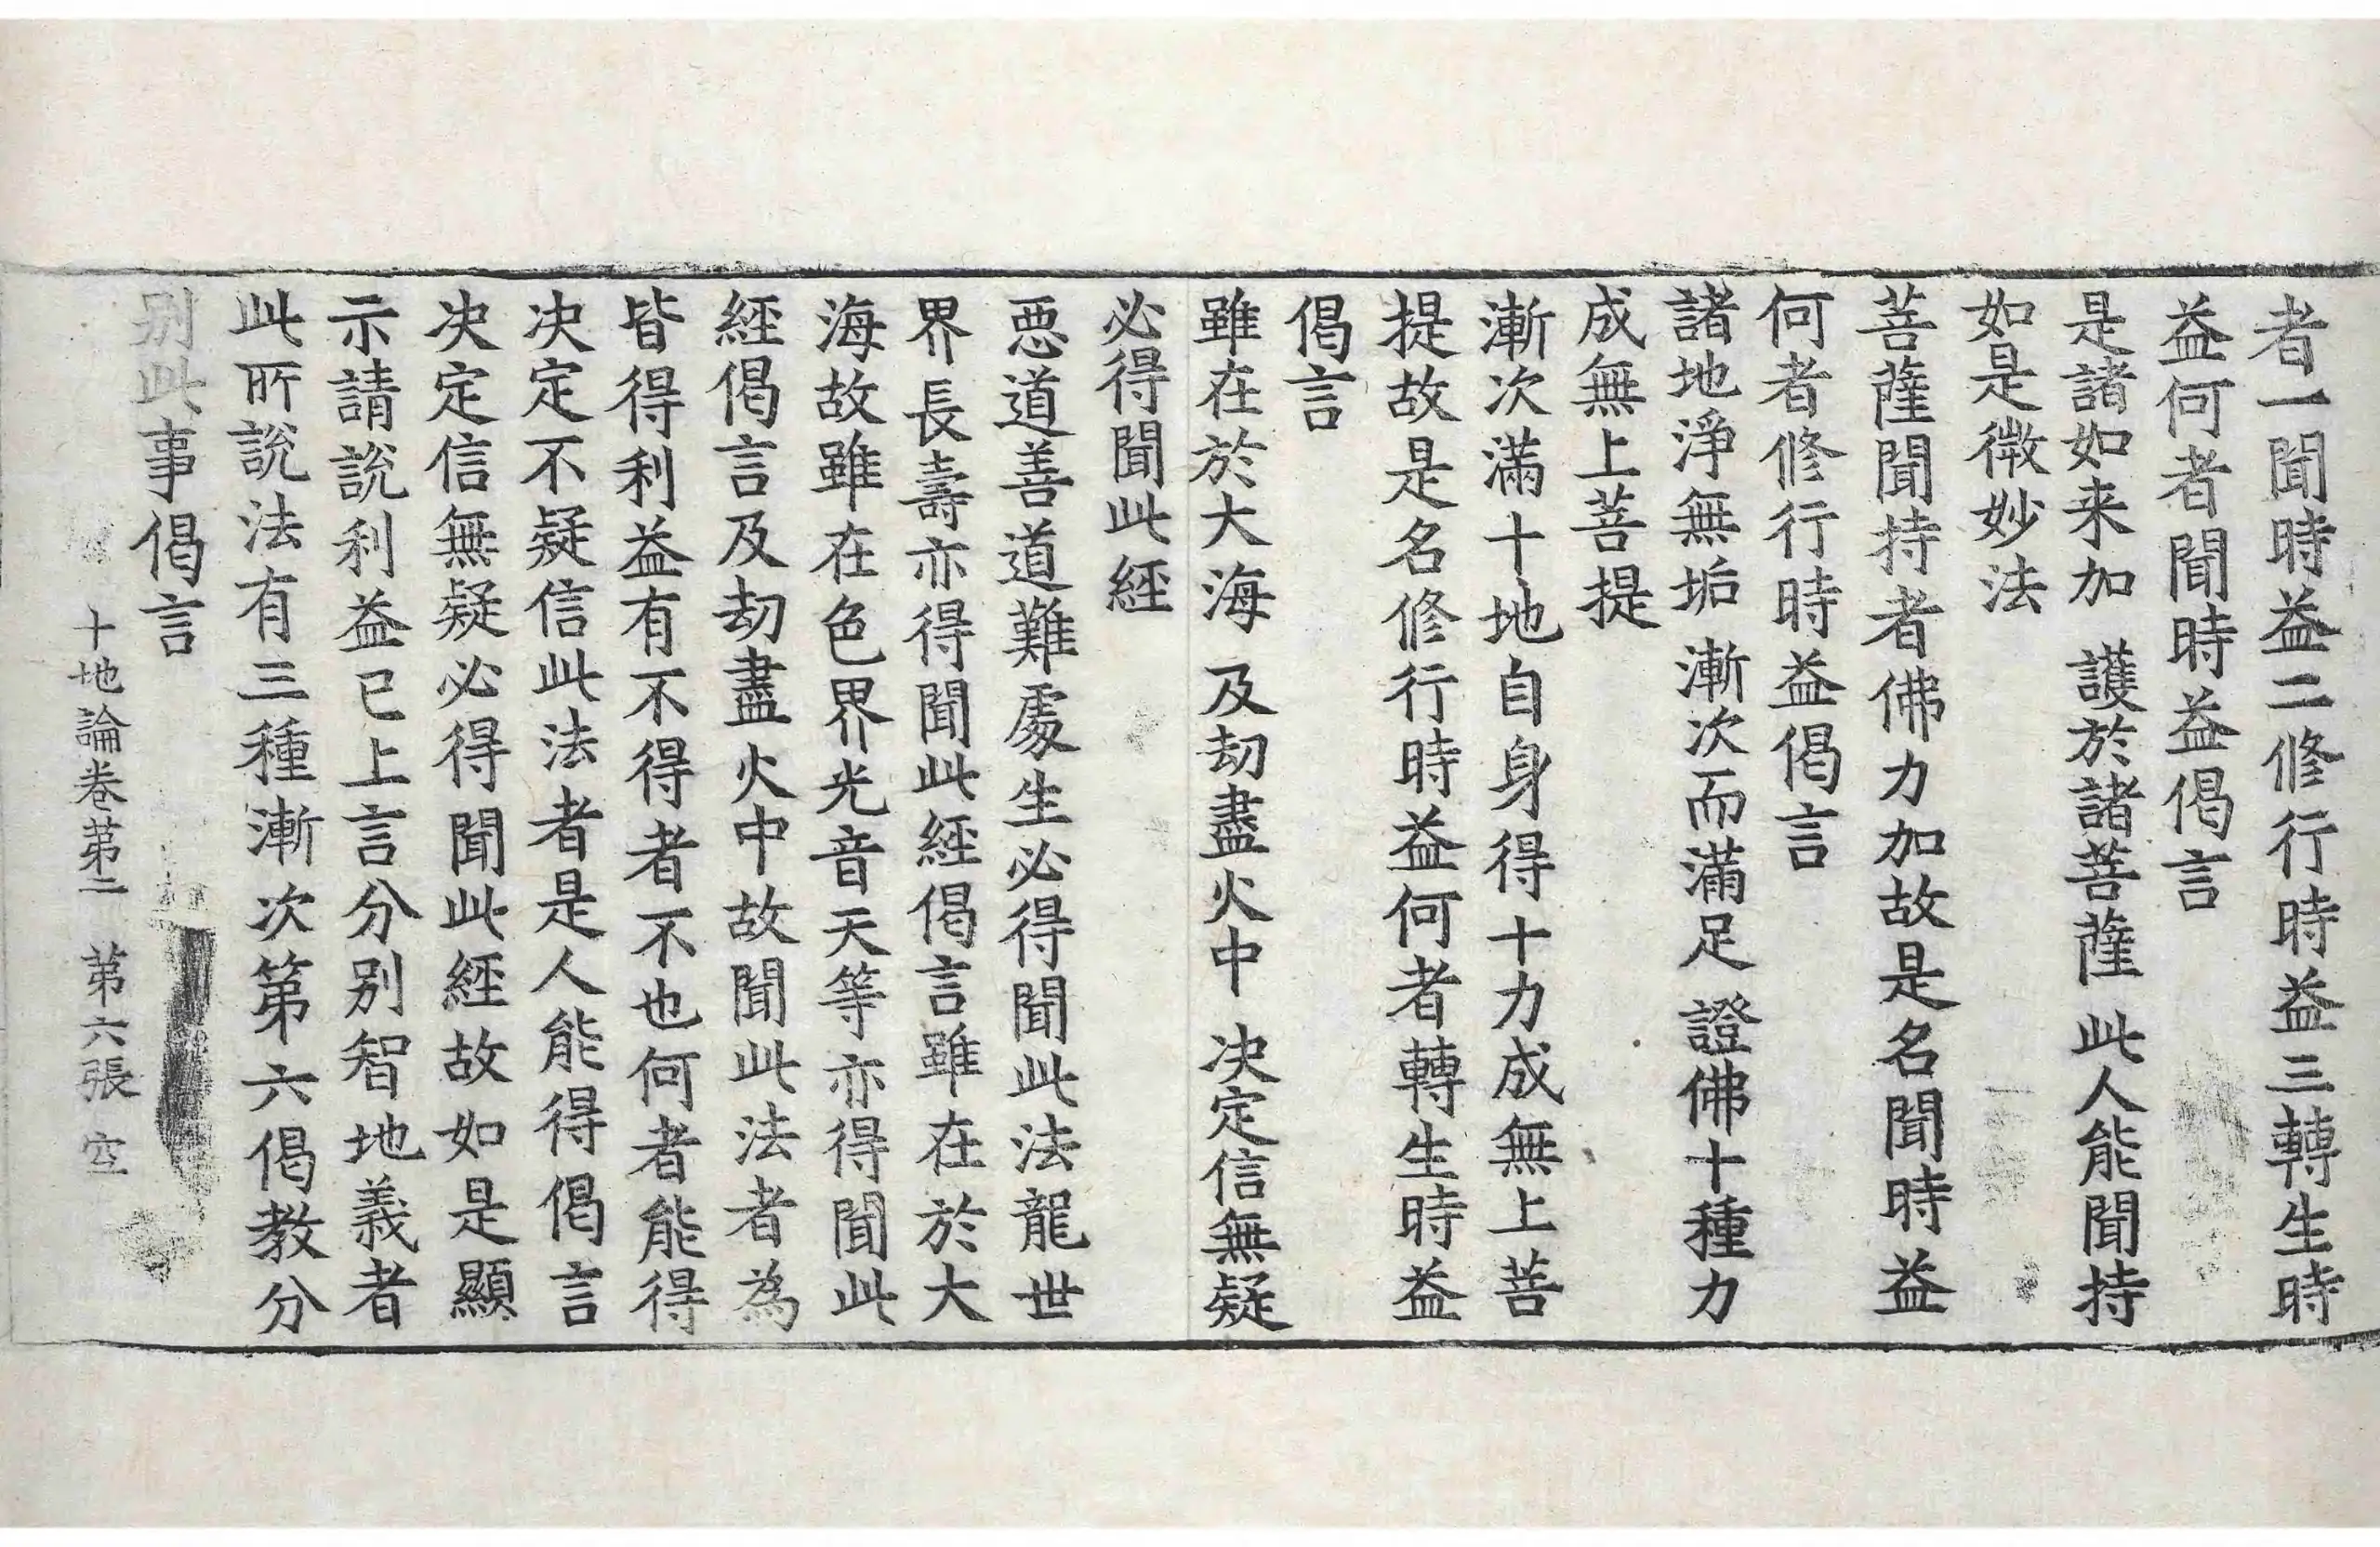 者一聞時益二修行時益三轉生時
益何者聞時益偈言
是諸如来加　護於諸菩薩　此人能聞持
如是微妙法
菩薩聞持者佛力加故是名聞時益
何者修行時益偈言
諸地淨無垢　漸次而滿足　證佛十種力
成無上菩提
漸次滿十地自身得十力成無上菩
提故是名修行時益何者轉生時益
偈言
雖在於大海　及劫盡火中　决定信無疑
必得聞此經
惡道善道難處生必得聞此法龍世
界長壽亦得聞此經偈言雖在於大
海故雖在色界光音天等亦得聞此
經偈言及劫盡火中故聞此法者為
皆得利益有不得者不也何者能得
决定不疑信此法者是人能得偈言
决定信無疑必得聞此經故如是顯
示請說利益已上言分别智地義者
此所說法有三種漸次第六偈教分
别此事偈言
十地論卷第二　第六張　空